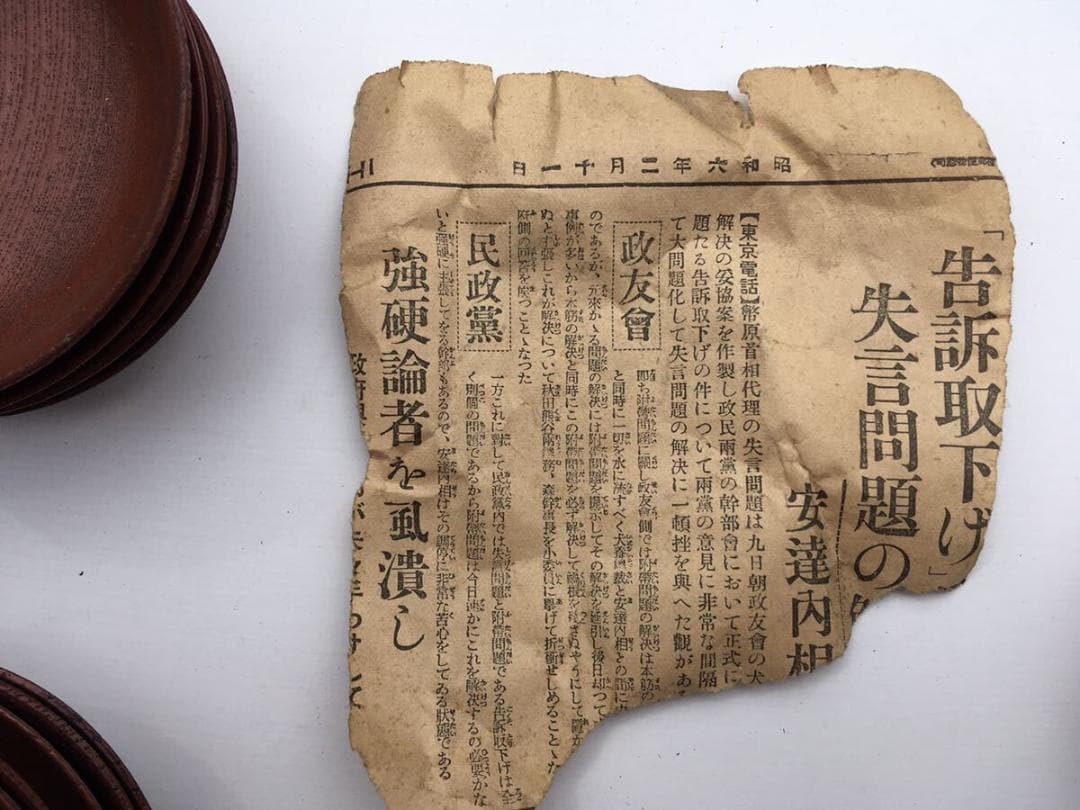 昭和六年二月十一日
「告訴取下げ」
失言問題の
安達内相
【東京電話】幣原首相代理の失言問題は九日朝政友會の犬
解決の妥協案を作製し政民兩黨の幹部會において正式に
題たる告訴取下げの件について兩黨の意見に非常な間隔
て大問題化して失言問題の解決に一頓挫を與へた觀があ
政友會
即ち附帶問題に關し政友會側では附帶問題の解決は本筋の
と同時に一切を水に流すべく犬養總裁と安達内相との間に
のであるが、元來かゝる問題の解決には附帶問題を
事例が多いから本筋の解決と同時にこの附帶問題を必ず解決して禍根を殘さぬやうにして置か
ぬと主張しこれが解決について秋田熊谷兩總務、森幹事長を小委員に擧げて折衝せしめることゝな
府側の回答を俟つことゝなつた
民政黨
一方これに對して民政黨内では失言問題と附帶問題である告訴取下げは全
く別個の問題であるから附帶問題は今日速かにこれを解決するの必要がな
いと強硬に主張してをる幹部もあるので、安達内相はその調停に非常な苦心をしてゐる狀態である
強硬論者を虱潰し